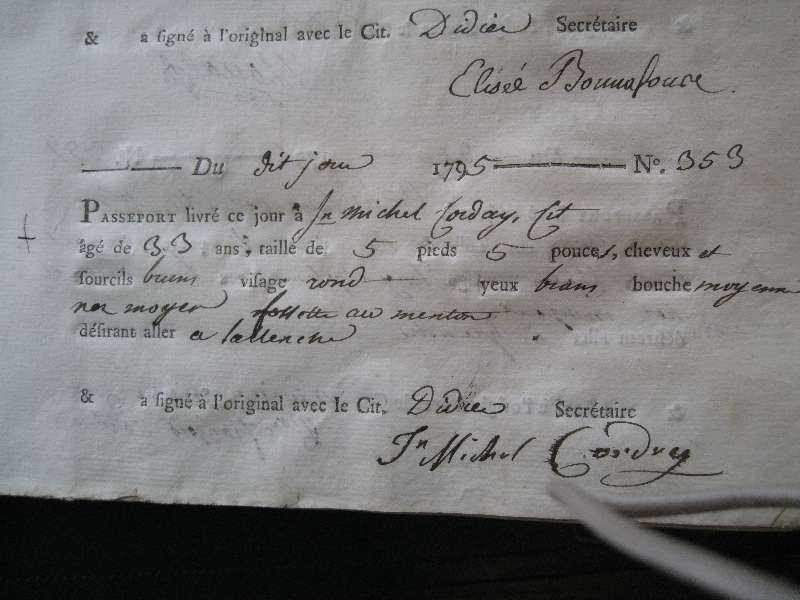 & a signé à l'original avec le Cit. Didier Secrétaire
Elisée Bonnafoure.
Du dit jour 1795 No. 353
PASSEPORT livré ce jour à Jn Michel Corday, Cit
âgé de 33 ans, taille de 5 pieds 5 pouces, cheveux et
sourcils bruns visage rond yeux bruns bouche moyenne
nez moyen fossette au menton
désirant aller a
& a signé à l'original avec le Cit. Didier Secrétaire
Jn Michel Corday